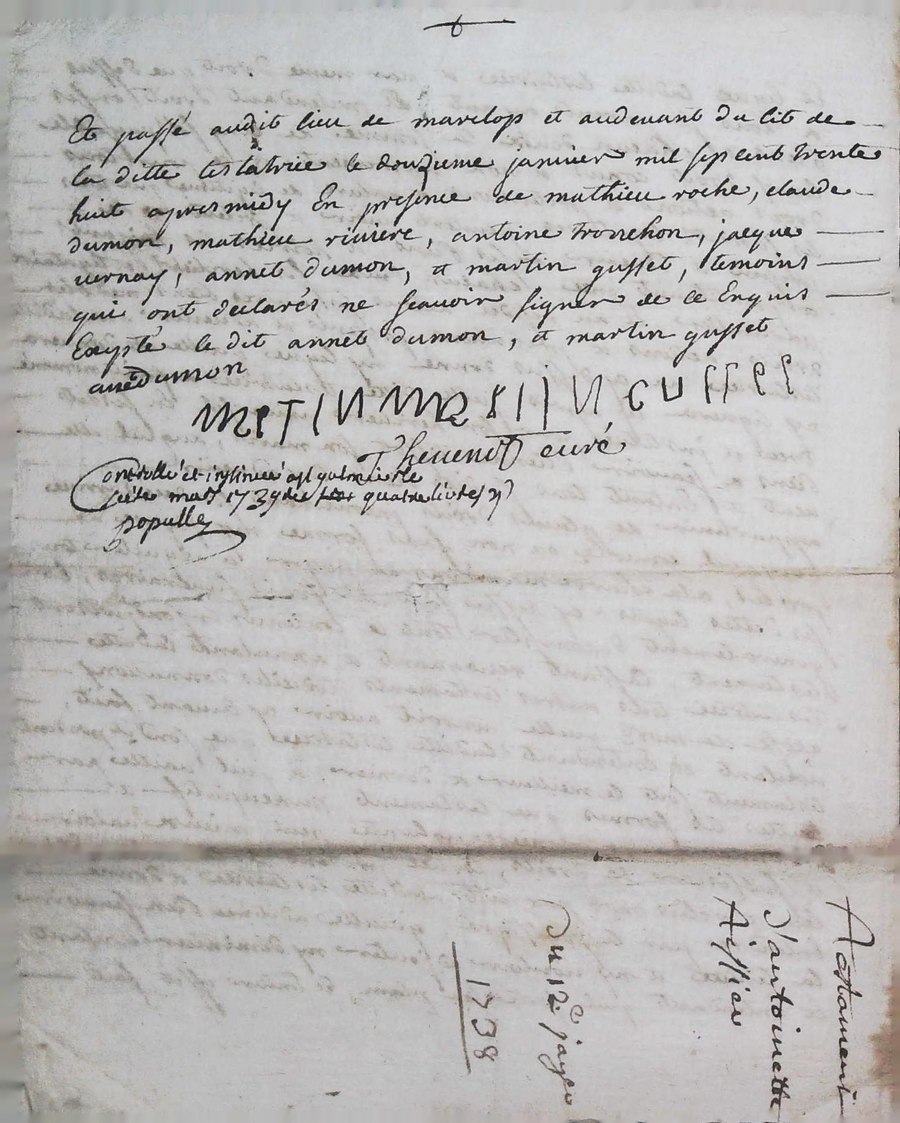 Et passé audit lieu de marclop et audevant du lit de
la ditte testatrice le douzieme janvier mil sept cent trente
huit apres midy En presence de mathieu roche, claude
dumon, mathieu riviere, antoine tronchon, jacque
vernay, annet dumon, et martin gusset, temoins
qui ont declarés ne scavoir signer de ce Enquis
Excepté le dit annet dumon, et martin gusset
dumon
Thevenot curé
Controllé et insinué
1739 quatre livres
populle
testament
d'antoinette
Du 12e janer
1738